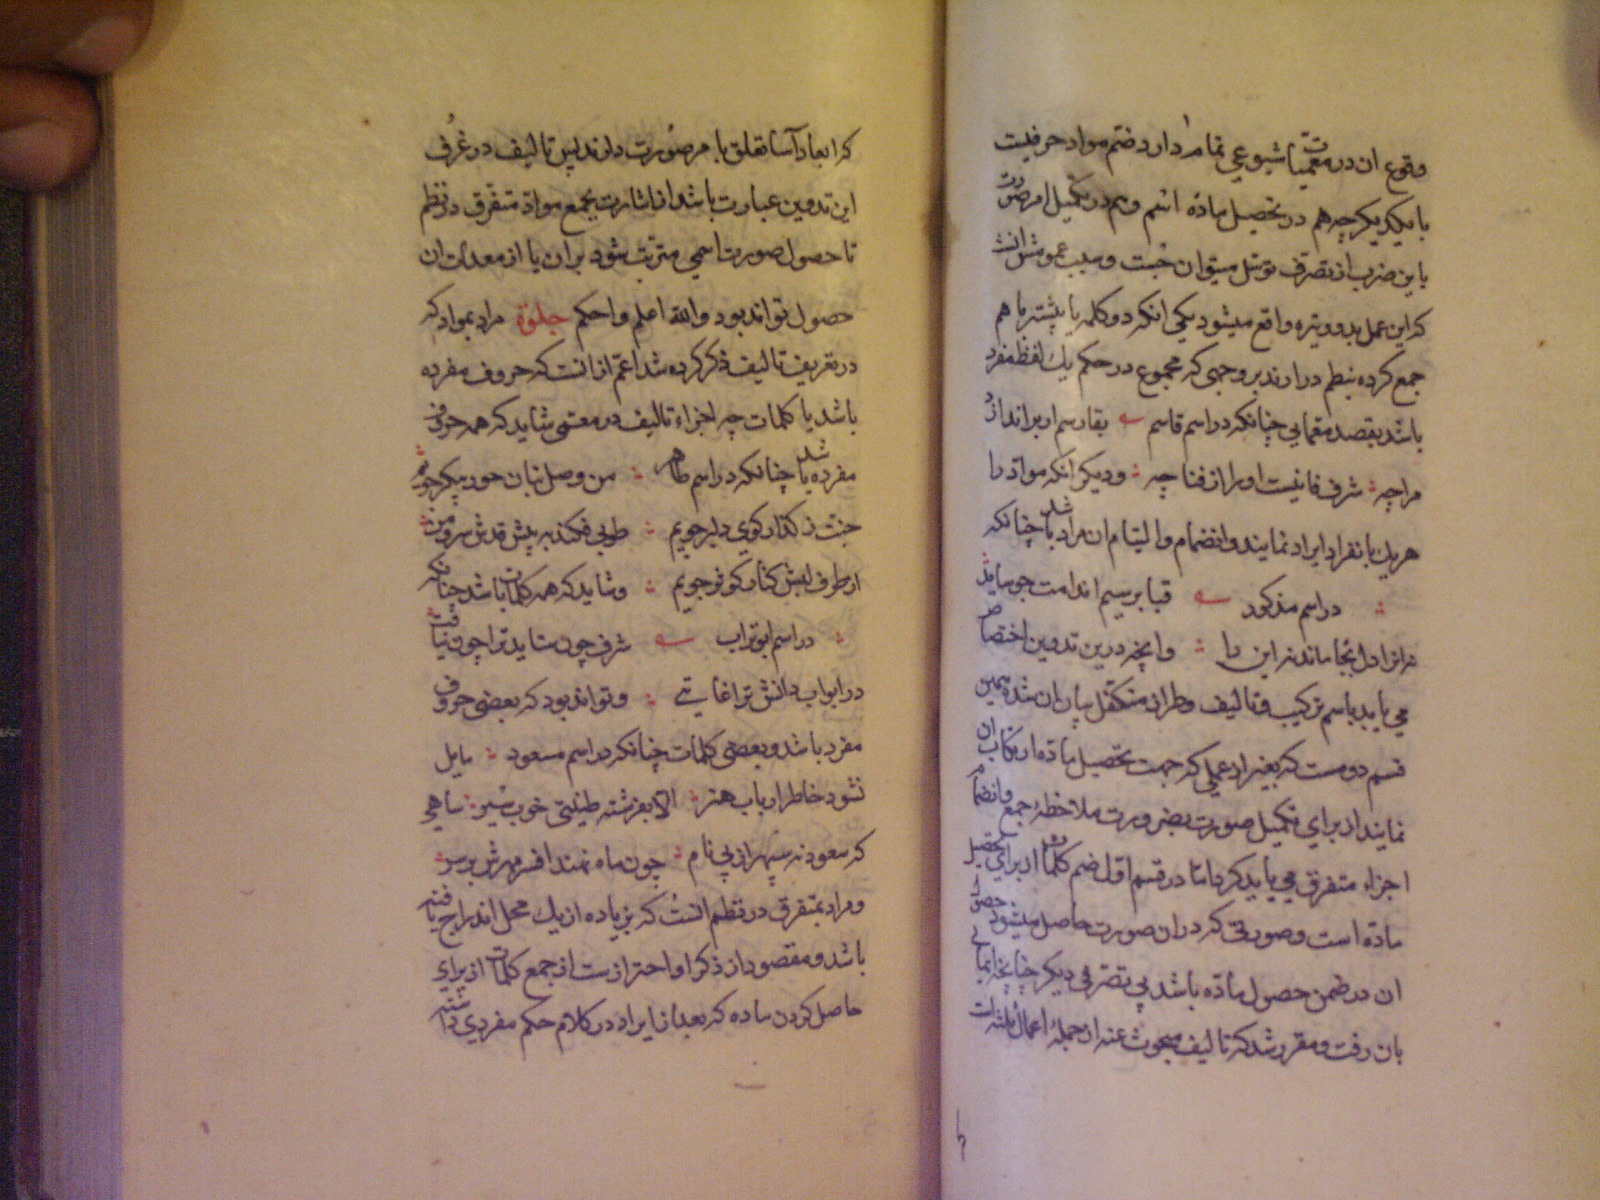 وقوع ان در معمیات شیوعی تمام دارد و ضم مواد حرفیت
با یکدیکر چه هم در تحصیل ماده اسم و هم در تکمیل امر صورت
باین ضرب از تصرف توسل میتوان جست و سبب عمومش انست
که این عمل بدو وتیره واقع میشود یکی انکه دو کلمه یا بیشتر باهم
جمع کرده بنظم درارند بر وجهی که مجموع در حکم یك لفظ مفرد
باشد بقصد معمایی چنانکه در اسم قاسم بقا رسم او براندازد
مرا چه شرف فانیست او را از فنا چه و دیکر انکه مواد را
هریك بانفراد ایراد نمایند و انضمام و التیام ان مراد باشد چنانکه
در اسم مذکور قبا بر سیم اندامت جو ساید
نه از اول بجا ماند نه این را وانچه درین تدوین اختصاص
می یابد باسم ترکیب و تالیف وطراز متکفل بیان ان شده همین
قسم دومست که بغیر از عملی که جهت تحصیل ماده ارتکاب ان
نمایند از برای تکمیل صورت بضرورت ملاحظه جمع وانضمام
اجزاء متفرق می باید کرد اما در قسم اول ضم کلمات از برای تحصیل
ماده است و صورتی که دران صورت حاصل میشود حصول
ان در ضمن حصول ماده باشد بی تصرفی دیکر چنانچه ایمائی
بان رفت و مقرر شد که تالیف مبحوث عنه از جمله اعمال ثلثه است
که ابعاد آسا تعلق بامر صورت دارند پس تالیف در عرف
این تدوین عبارت باشد از اشارت بجمع مواد متفرق در نظم
تا حصول صورت اسمی مترتب شود بران یا از معدات ان
حصول تواند بود والله اعلم واحکم جلوة مراد بمواد که
در تعریف تالیف ذکر کرده شد اعم از انست که حروف مفرده
باشد یا کلمات چه اجزاء تالیف در معمی شاید که همه حروف
مفرده باشد چنانکه در اسم طاهر من وصل بتان حور پیکر جویم
جنت ز کنار کوی دلبر جویم طوبی فکند به پیش قدش سرو من
از طرف لبش کنار کوثر جویم وشاید که همه کلمات باشد چنانکه
در اسم ابو تراب شرف چون ستاید ترا چون نیافت
در ابواب دانش ترا غایتی وتواند بود که بعضی حروف
مفرد باشد و بعضی کلمات چنانکه در اسم مسعود مایل
نشود خاطر ارباب هنر الا بفرشته طینتی خوب سیر ماهی
که سعود نه سپهر از پی نام چون ماه نهند افسر مهرش بر سر
و مراد بمتفرق در نظم انست که بزیاده از یك محل اندراج یافته
باشد و مقصود از ذکر او احترازست از جمع کلمات از برای
حاصل کردن ماده که بعد از ایراد در کلام حکم مفردی داشته